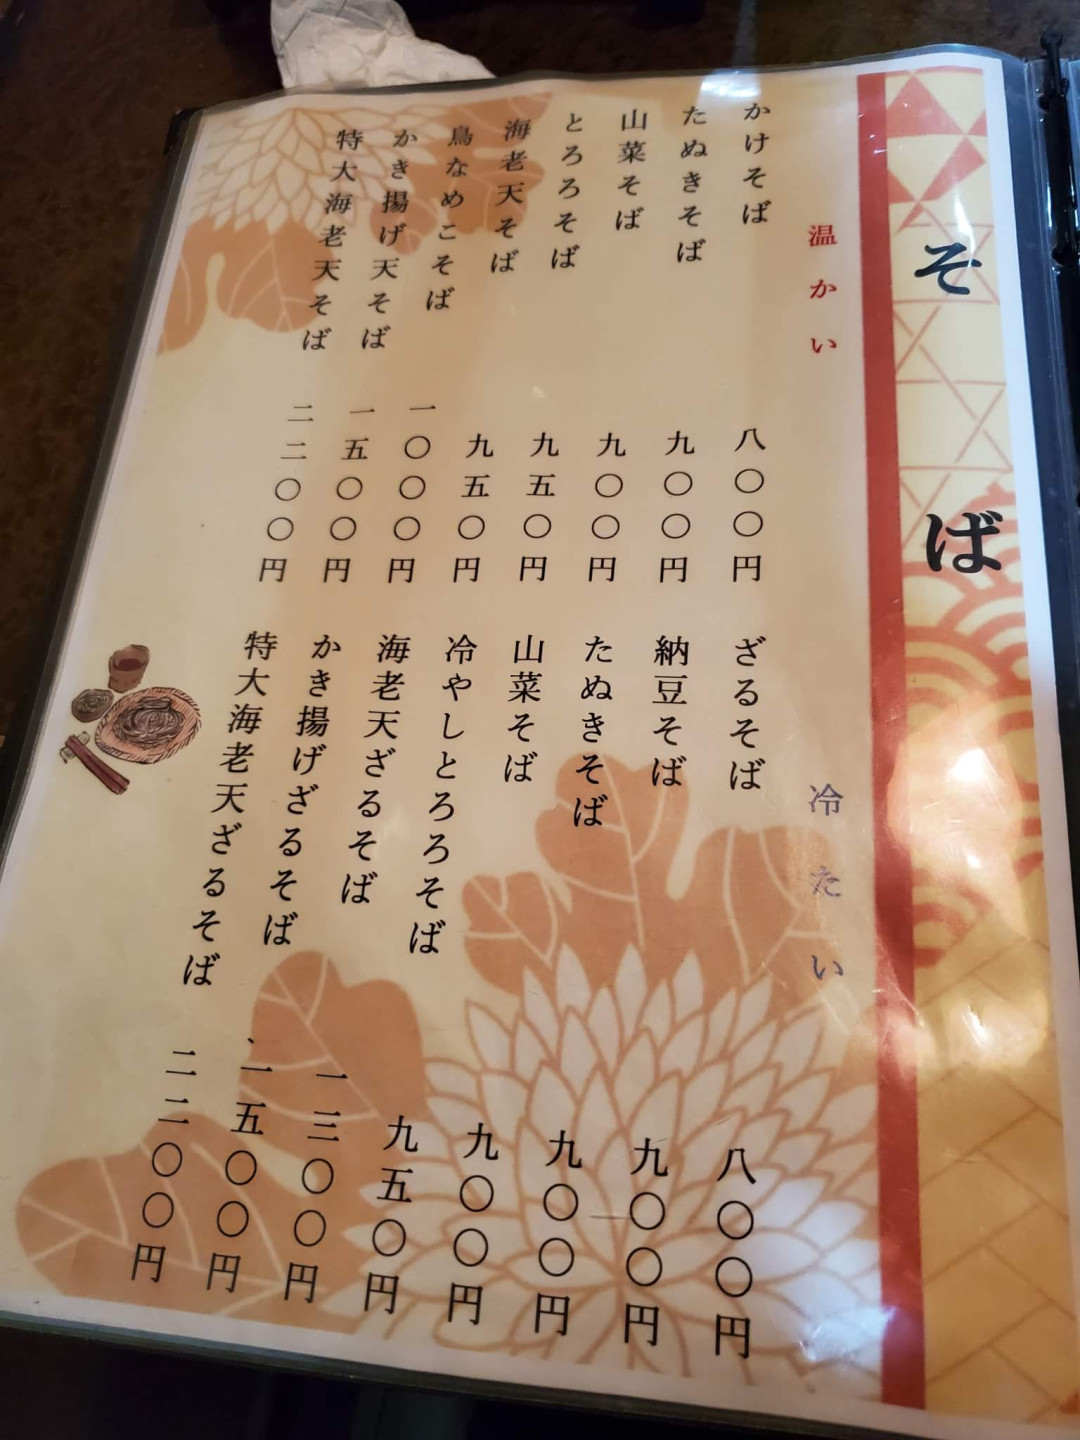 そば
温かい
かけそば 八〇〇円
たぬきそば 九〇〇円
山菜そば 九〇〇円
とろろそば 九五〇円
海老天そば 九五〇円
鳥なめこそば 一〇〇〇円
かき揚げ天そば 一五〇〇円
特大海老天そば 二二〇〇円
冷たい
ざるそば 八〇〇円
納豆そば 九〇〇円
たぬきそば 九〇〇円
山菜そば 九〇〇円
冷やしとろろそば 九五〇円
海老天ざるそば 一三〇〇円
かき揚げざるそば 一五〇〇円
特大海老天ざるそば 二二〇〇円